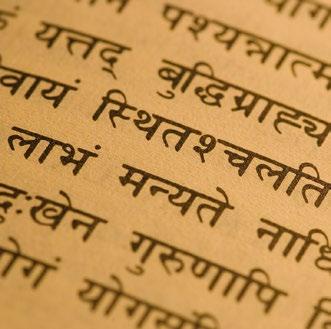 पश्यन्नात्म
यत्तद् बुद्धिग्राह्य
वायं स्थितश्चलति
लाभं मन्यते ना
दुःखेन गुरुणापि
योगं